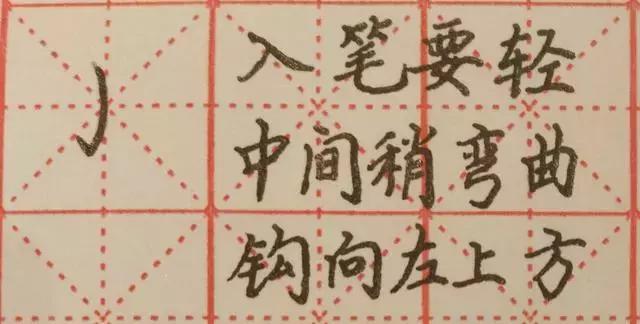 入笔要轻
中间稍弯曲
钩向左上方